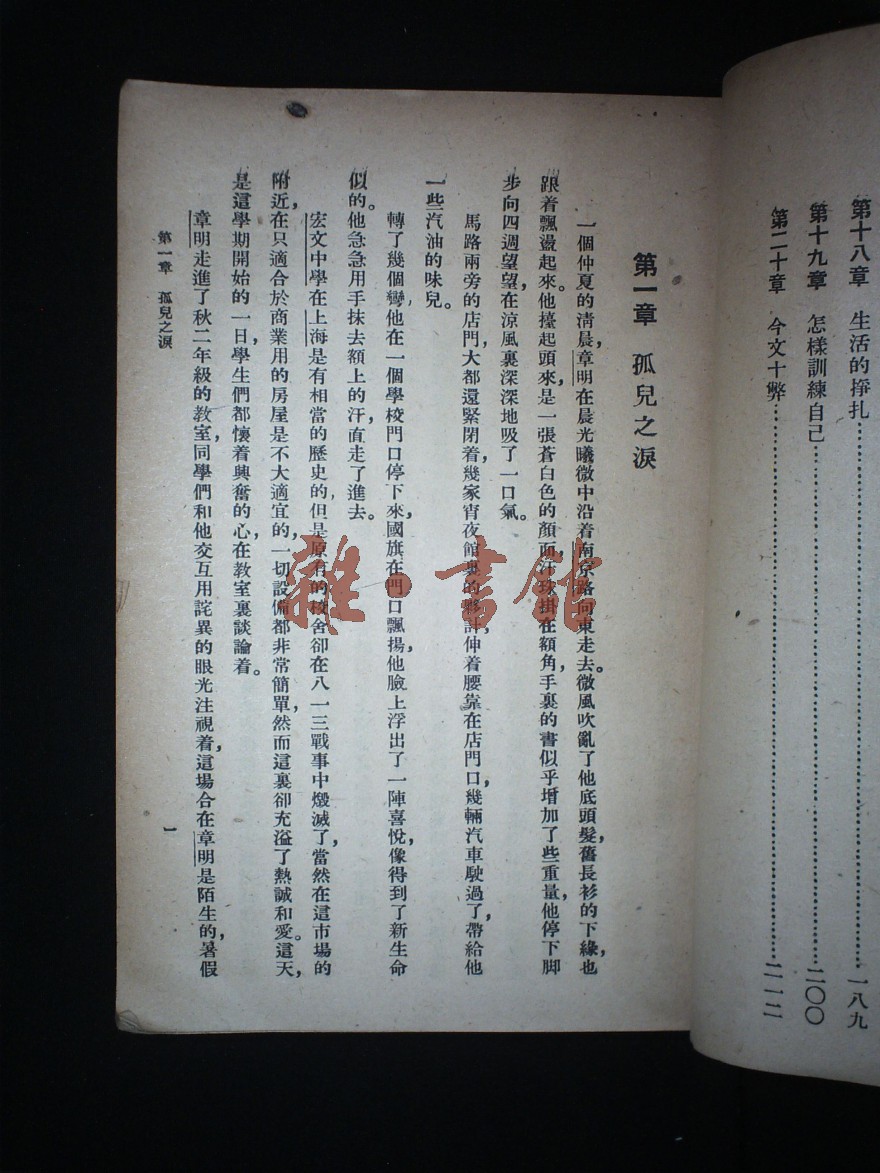 第十八章　生活的掙扎……一八九
第十九章　怎樣訓練自己……二〇〇
第二十章　今文十弊……二一二
第一章　孤兒之淚
一個仲夏的清晨，章明在晨光曦微中沿着南京路向東走去。微風吹亂了他底頭髮，舊長衫的下緣，也
跟着飄盪起來。他擡起頭來，是一張蒼白色的顏面，汗珠掛在額角，手裏的書似乎增加了些重量，他停下脚
步向四週望望，在涼風裏深深地吸了一口氣。
馬路兩旁的店門，大都還緊閉着，幾家宵夜館裏的夥計，伸着腰靠在店門口，幾輛汽車駛過了，帶給他
一些汽油的味兒。
轉了幾個彎，他在一個學校門口停下來，國旗在門口飄揚，他臉上浮出了一陣喜悅，像得到了新生命
似的。他急急用手抹去額上的汗，直走了進去。
宏文中學在上海是有相當的歷史的，但是原有的校舍卻在八一三戰事中燬滅了，當然在這市場的
附近，在只適合於商業用的房屋是不大適宜的，一切設備都非常簡單，然而這裏卻充溢了熱誠和愛。這天，
是這學期開始的一日，學生們都懷着興奮的心，在教室裏談論着。
章明走進了秋二年級的教室，同學們和他交互用詫異的眼光注視着，這場合在章明是陌生的，暑假
第一章　孤兒之淚
一
雜·書館